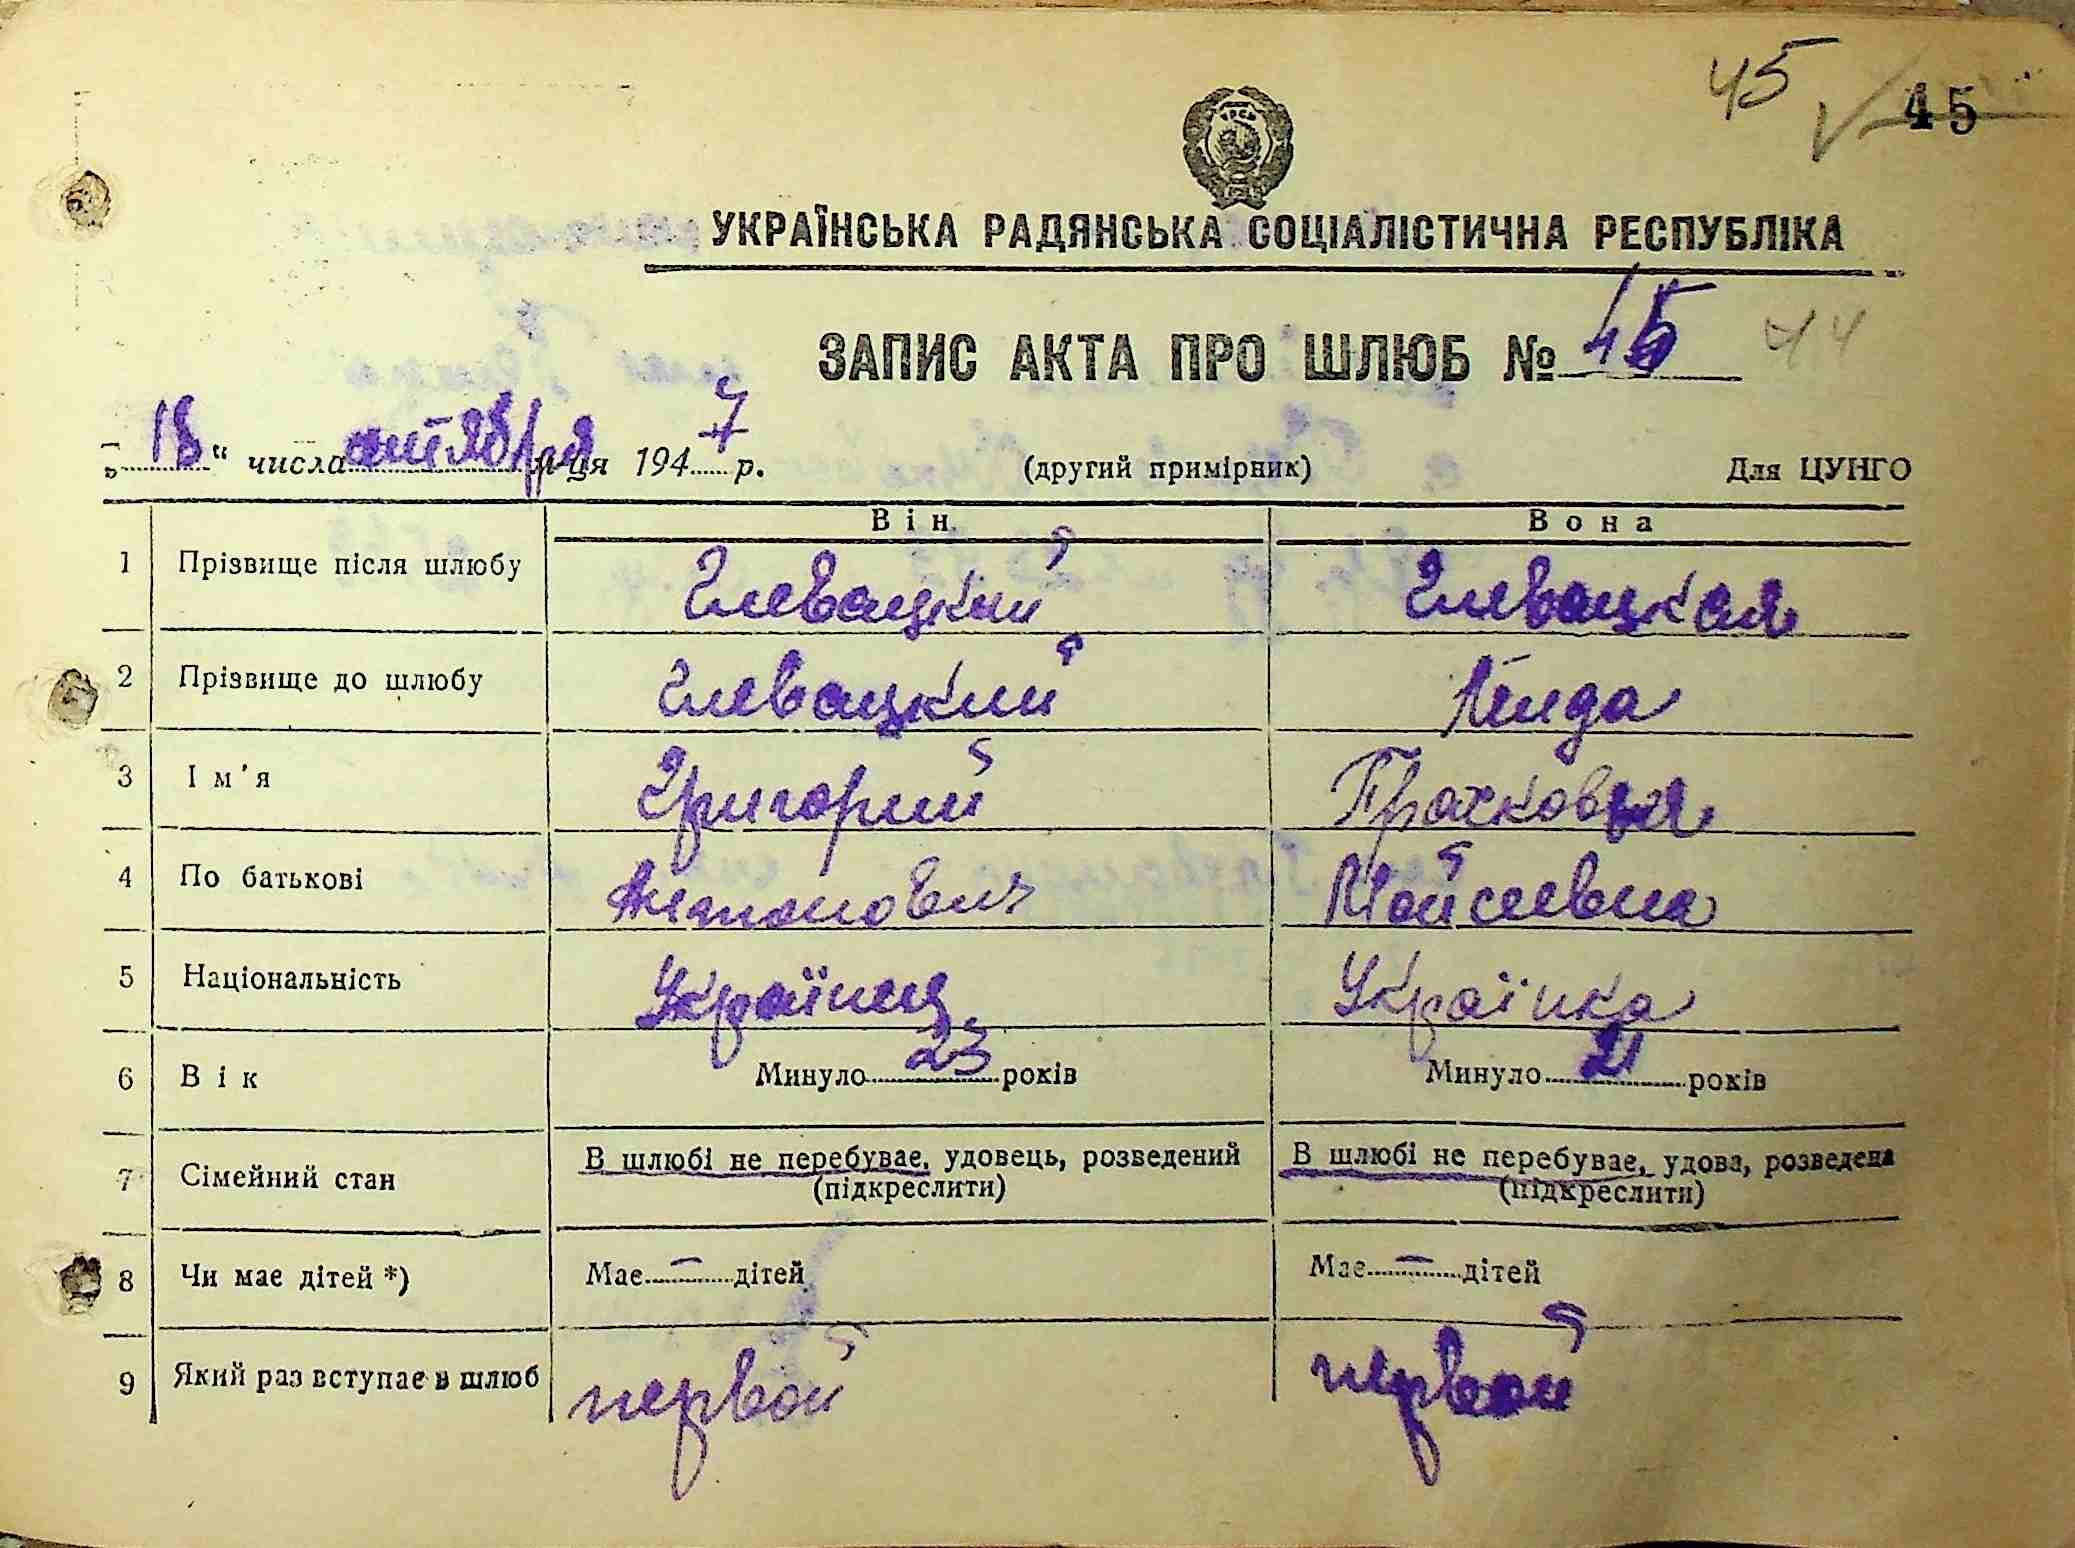 45
45
УКРАЇНСЬКА РАДЯНСЬКА СОЦІАЛІСТИЧНА РЕСПУБЛІКА
ЗАПИС АКТА ПРО ШЛЮБ № 45 44
„18“ числа октября м-ця 1947 р. (другий примірник) Для ЦУНГО
Він Вона
1 Прізвище після шлюбу Глевацкий Глевацкая
2 Прізвище до шлюбу Глевацкий
3 Ім'я Григорий Прасковья
4 По батькові Антонович Мойсеевна
5 Національність Українец Українка
6 Вік Минуло 23 років Минуло 21 років
7 Сімейний стан В шлюбі не перебуває, удовець, розведений В шлюбі не перебуває, удова, розведена
(підкреслити) (підкреслити)
8 Чи має дітей *) Має — дітей Має — дітей
9 Який раз вступає в шлюб первой первой